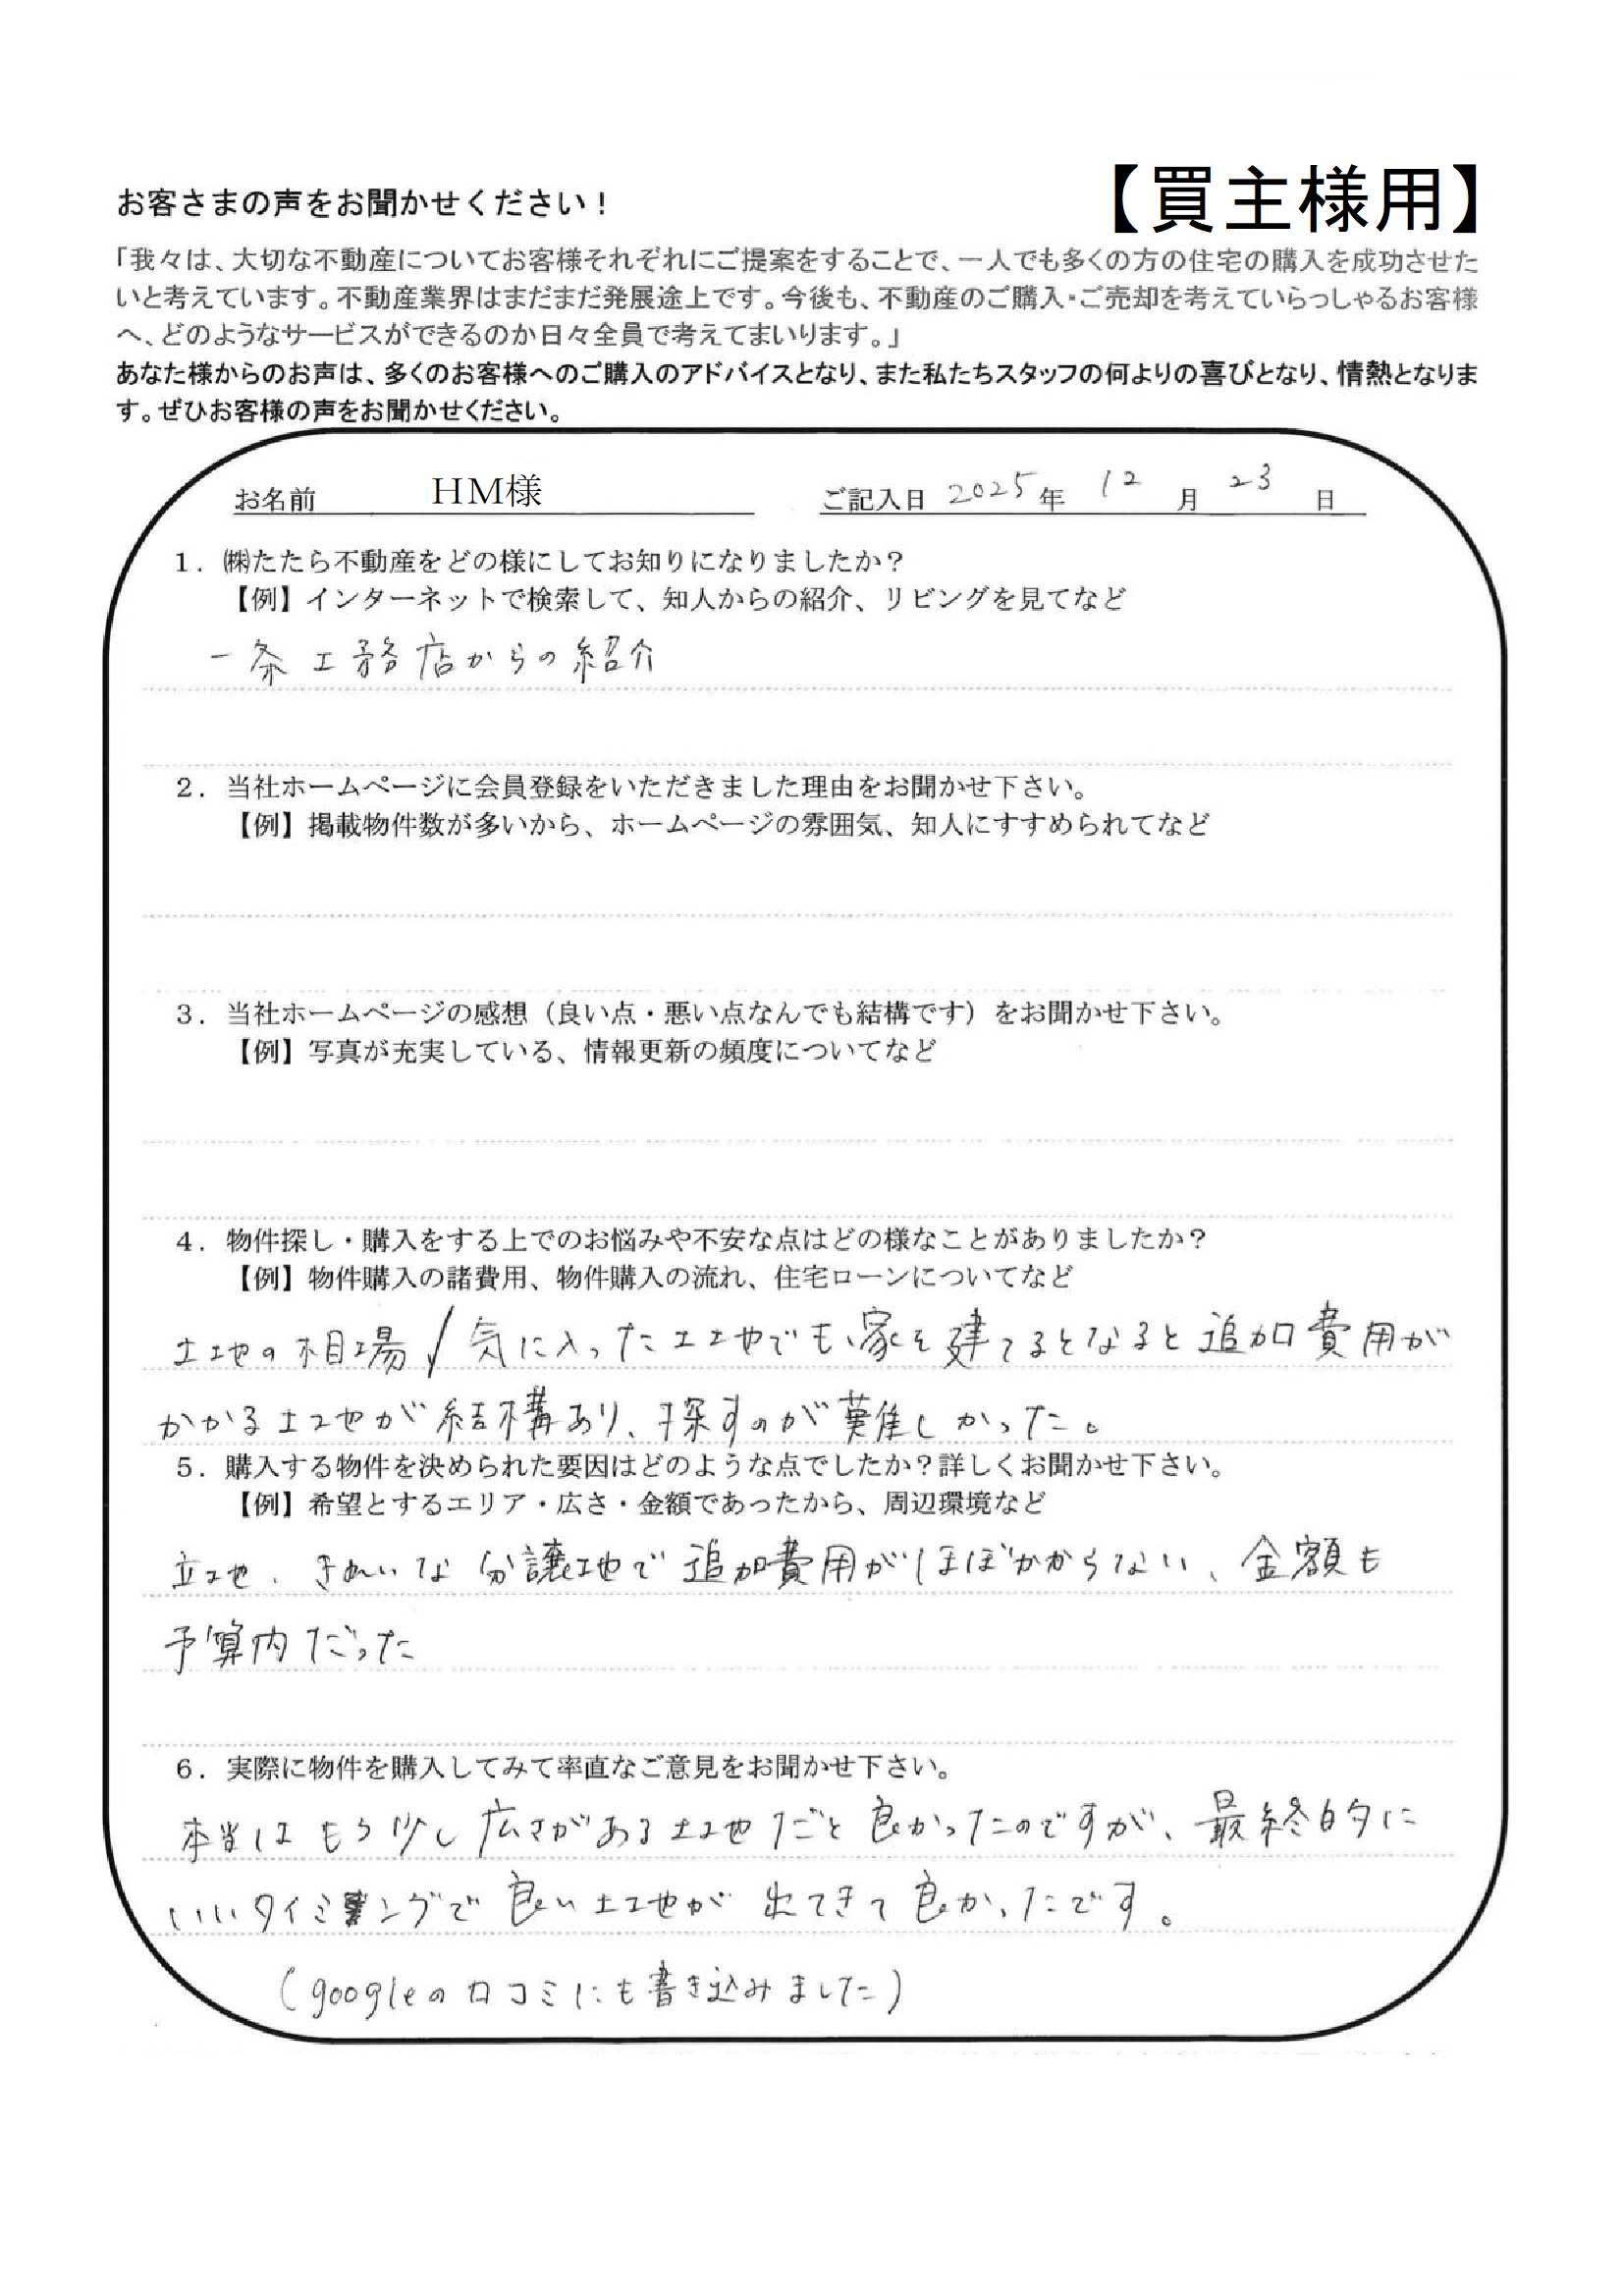 【買主様用】
お客さまの声をお聞かせください！
「我々は、大切な不動産についてお客様それぞれにご提案をすることで、一人でも多くの方の住宅の購入を成功させた
いと考えています。不動産業界はまだまだ発展途上です。今後も、不動産のご購入・ご売却を考えていらっしゃるお客様
へ、どのようなサービスができるのか日々全員で考えてまいります。」
あなた様からのお声は、多くのお客様へのご購入のアドバイスとなり、また私たちスタッフの何よりの喜びとなり、情熱となりま
す。ぜひお客様の声をお聞かせください。
お名前 HM様 ご記入日 2025 年 12 月 23 日
1．㈱たたら不動産をどの様にしてお知りになりましたか？
【例】インターネットで検索して、知人からの紹介、リビングを見てなど
一条工務店からの紹介
2．当社ホームページに会員登録をいただきました理由をお聞かせ下さい。
【例】掲載物件数が多いから、ホームページの雰囲気、知人にすすめられてなど
3．当社ホームページの感想（良い点・悪い点なんでも結構です）をお聞かせ下さい。
【例】写真が充実している、情報更新の頻度についてなど
4．物件探し・購入をする上でのお悩みや不安な点はどの様なことがありましたか？
【例】物件購入の諸費用、物件購入の流れ、住宅ローンについてなど
土地の相場/気に入った土地でも、家を建てるとなると追加費用が
かかる土地が結構あり、探すのが難しかった。
5．購入する物件を決められた要因はどのような点でしたか？詳しくお聞かせ下さい。
【例】希望とするエリア・広さ・金額であったから、周辺環境など
立地、きれいな分譲地で追加費用がほぼかからない、金額も
予算内だった
6．実際に物件を購入してみて率直なご意見をお聞かせ下さい。
本当はもう少し広さがある土地だと良かったのですが、最終的に
いいタイミングで良い土地が出てきて良かったです。
（googleの口コミにも書き込みました）